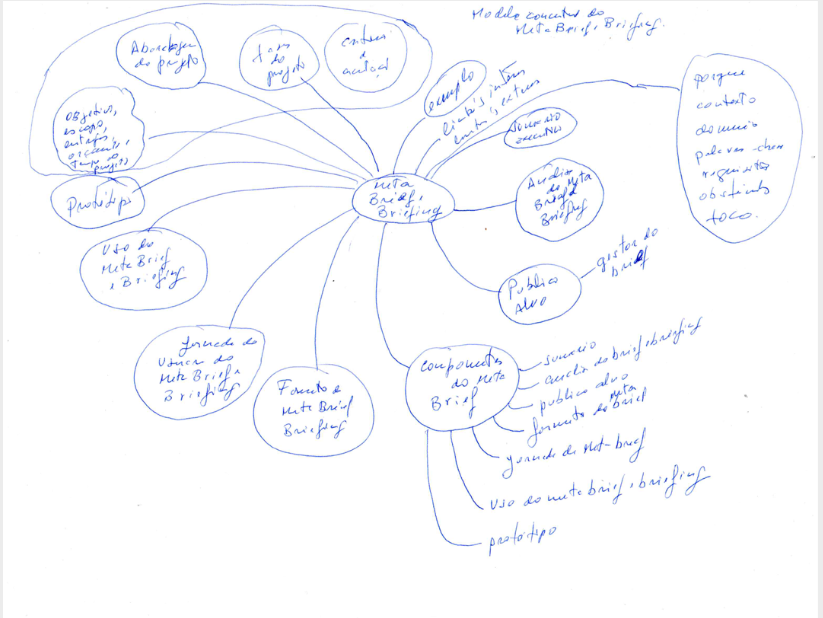 Modelo conceitual do
Meta Brief, Briefing.
Abordagem
do projeto
do
projeto
exemplo
porque
contexto
domínio
palavras-chave
requisitos
obstáculos
foco.
objetivo,
escopo,
tempo do
projeto
sumário
executivo
Protótipo
Meta
Brief,
Briefing
Análise
do Meta
Brief e
Briefing
Uso do
Meta Brief
e Briefing
Publico
Alvo
gestor do
brief
jornada do
usuario do
Meta Brief e
Briefing
Formato e
Meta Brief
Briefing
Componentes
do Meta
Brief
sumário
do brief e briefing
publico alvo
formato do Meta Brief
jornada do Meta-brief
Uso do meta brief, briefing
protótipo